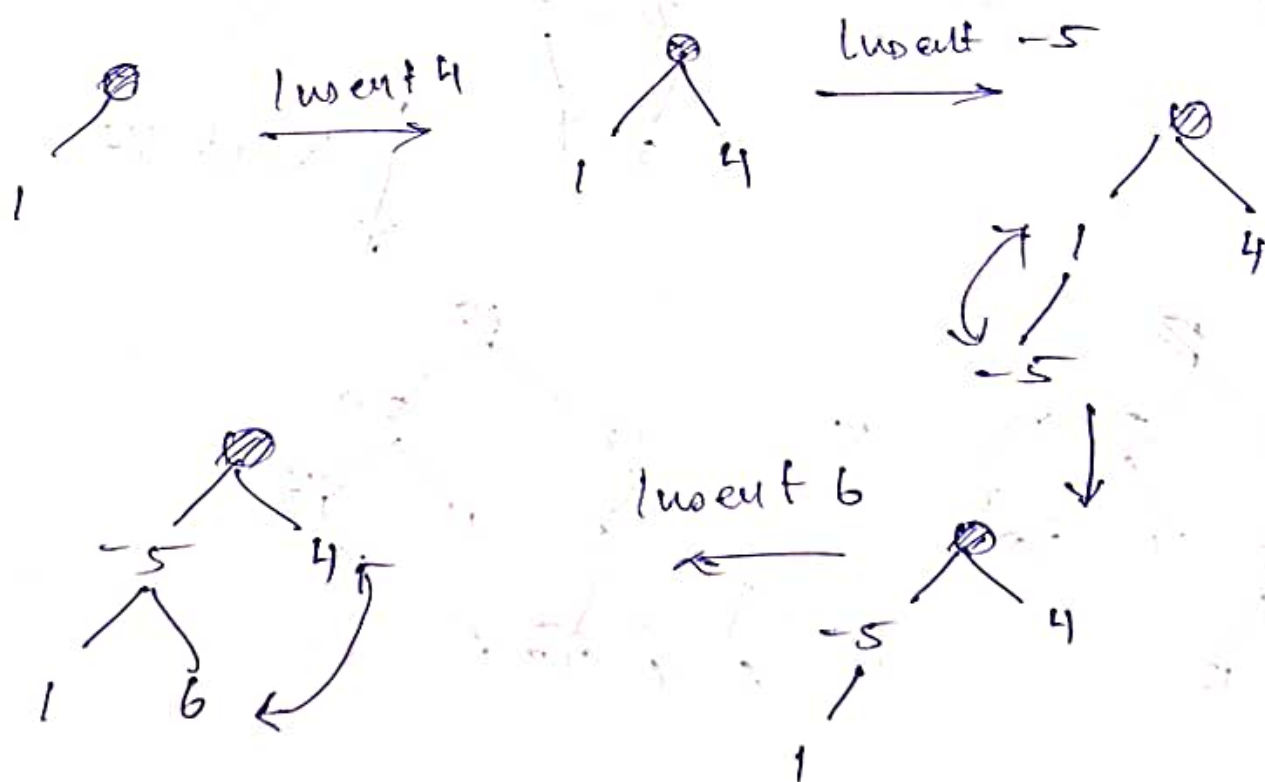 1
Insert 4
1 4
Insert -5
1 4
-5
-5 4
1
Insert 6
-5 4
1 6